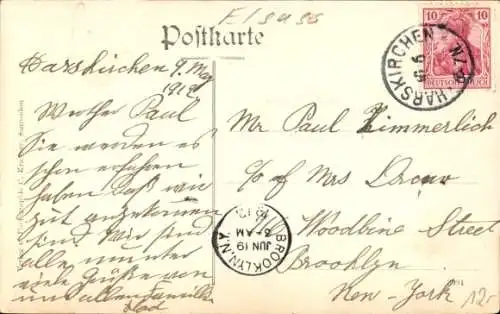 Elsass
Postkarte
Harskirchen 9. May
1912
Werther Paul
Sie werden es
schon erfahren
haben daß wir
gut angekommen
sind. Wir sind
alle munter
viele Grüße von
uns allen Familie
Mr Paul Zimmerlich
c/o of Mrs
Woodbine Street
Brooklyn
New-York
10 10
DEUTSCHES REICH
HARSKIRCHEN
BROOKLYN, N.Y.
JUN 19
AM
1912
12.-